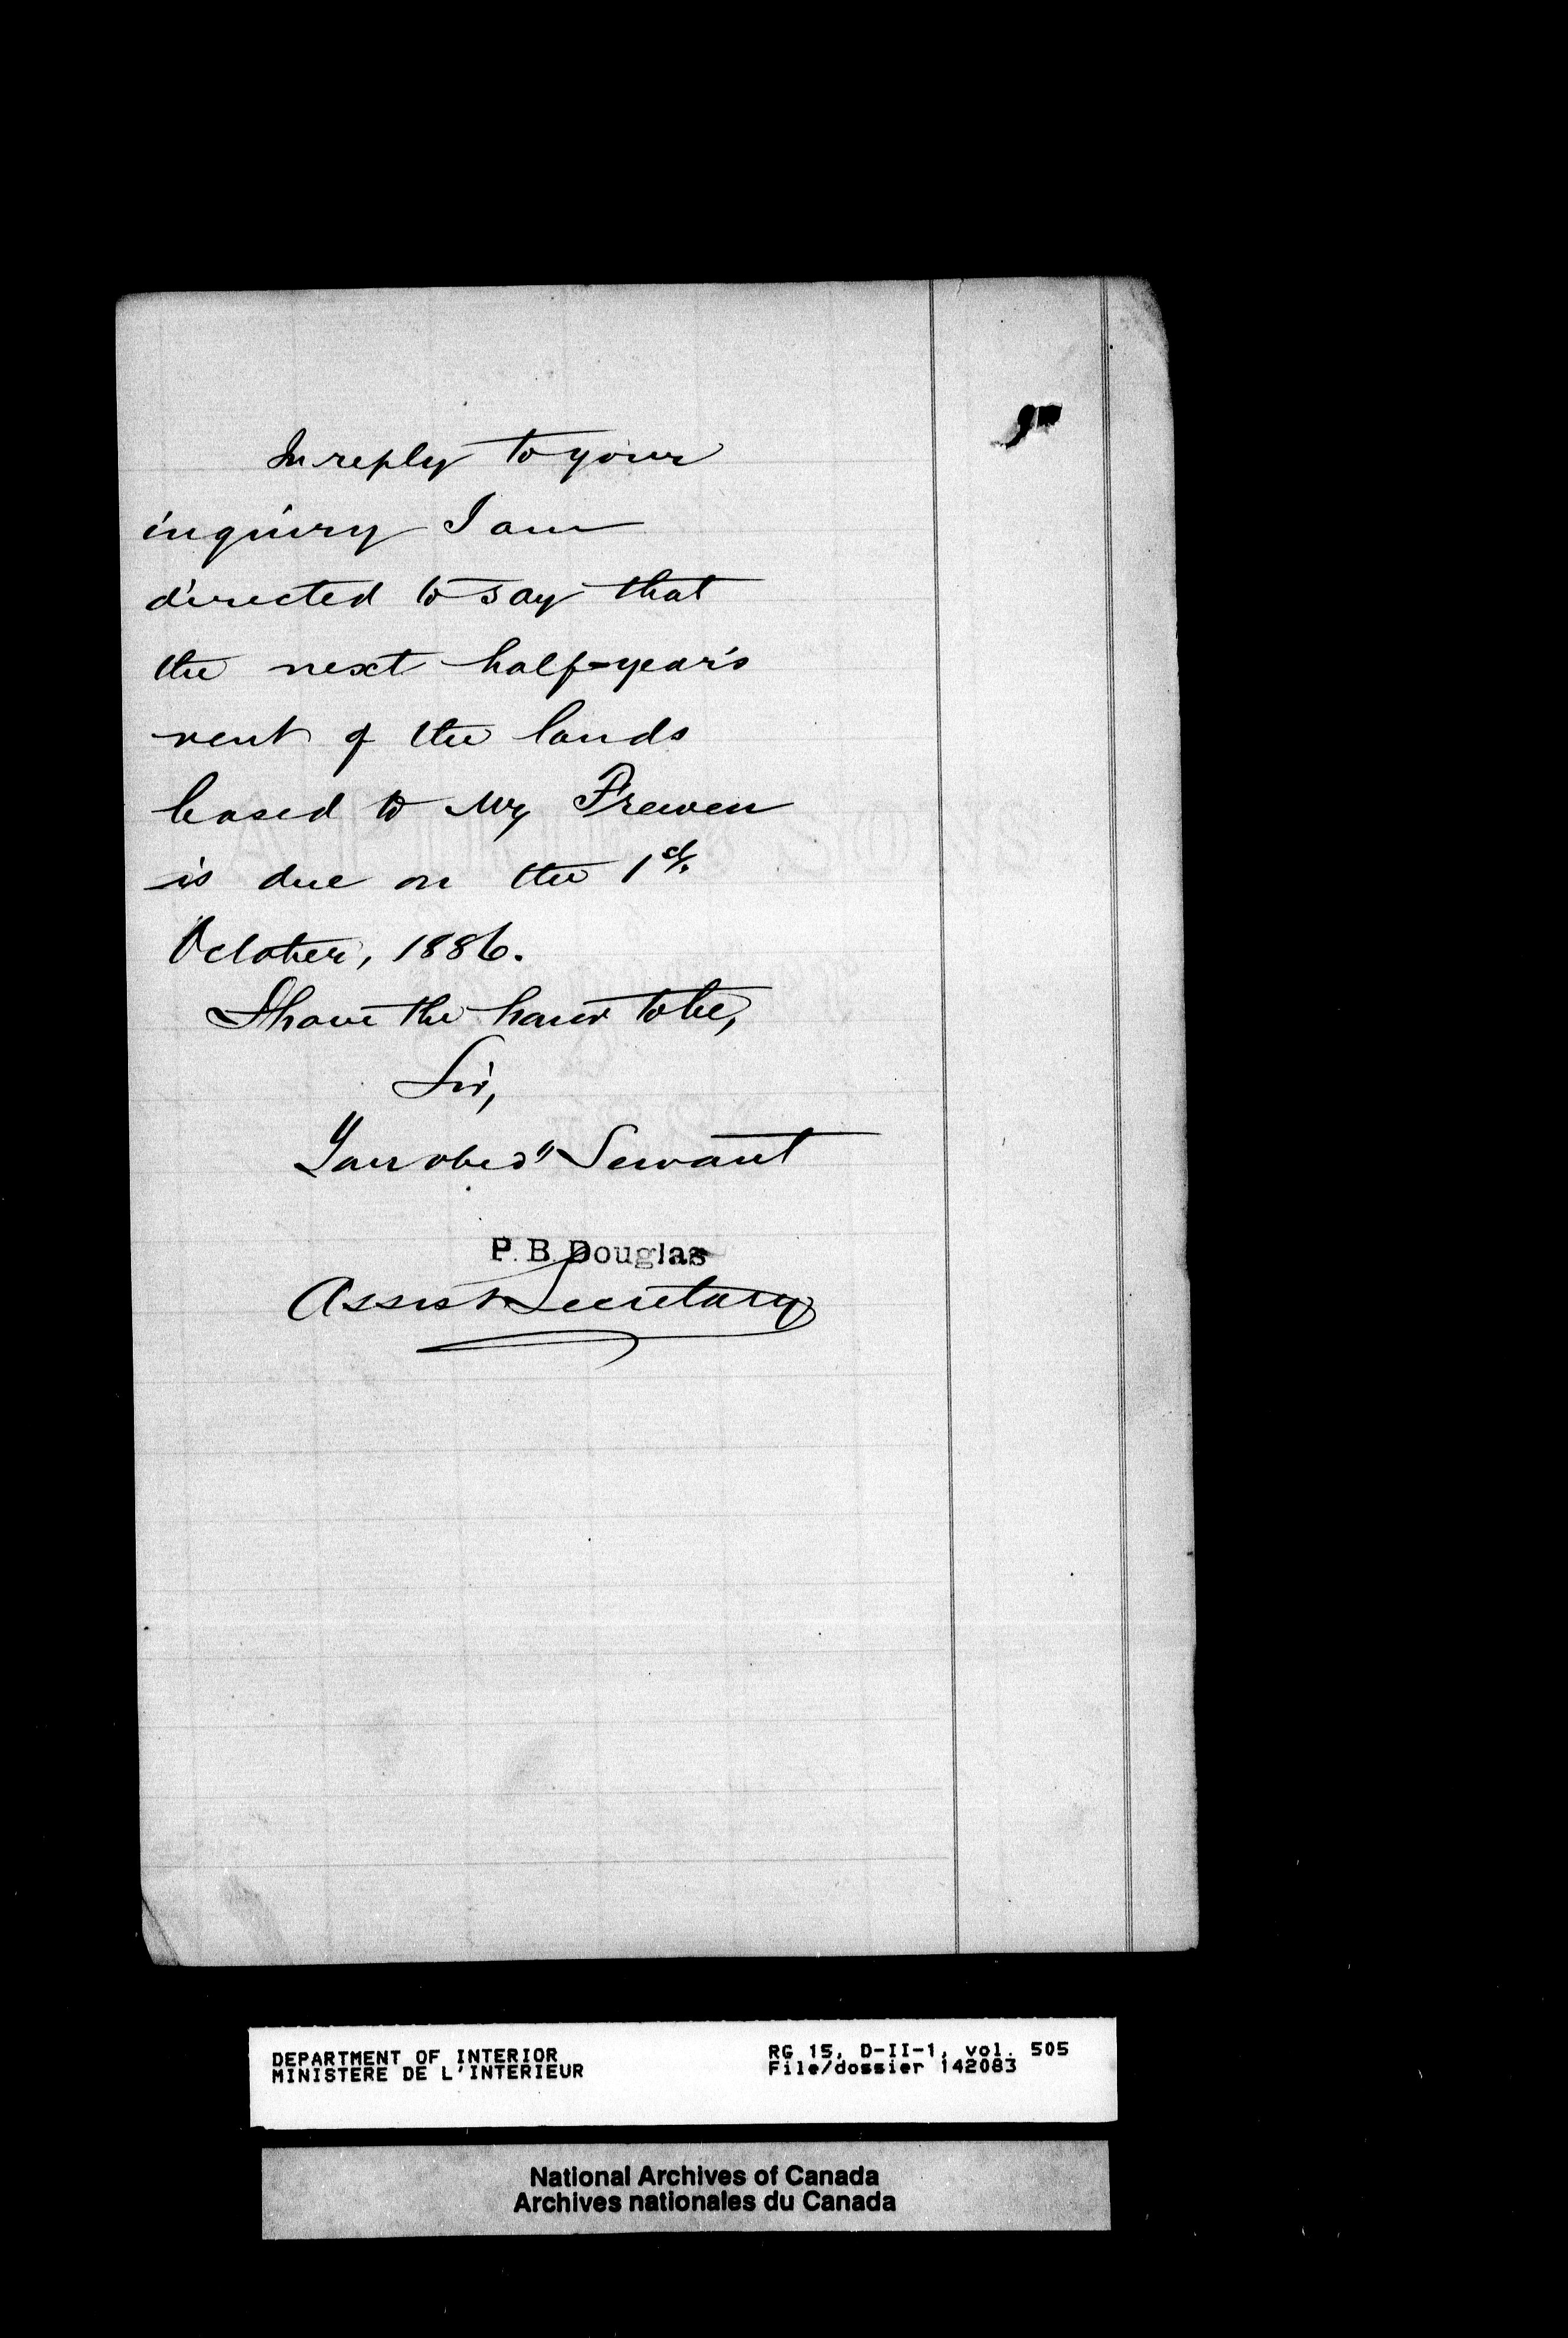 In reply to your
inquiry I am
directed to say that
the next half-year's
rent of the lands
leased to Mr Frewen
is due on the 1st.
October, 1886.
I have the honor to be,
Sir,
Your obed" Servant
P. B. Douglas
Assist Secretary
DEPARTMENT OF INTERIOR
MINISTERE DE L'INTERIEUR
RG 15, D-II-1, vol. 505
File/dossier 142083
National Archives of Canada
Archives nationales du Canada